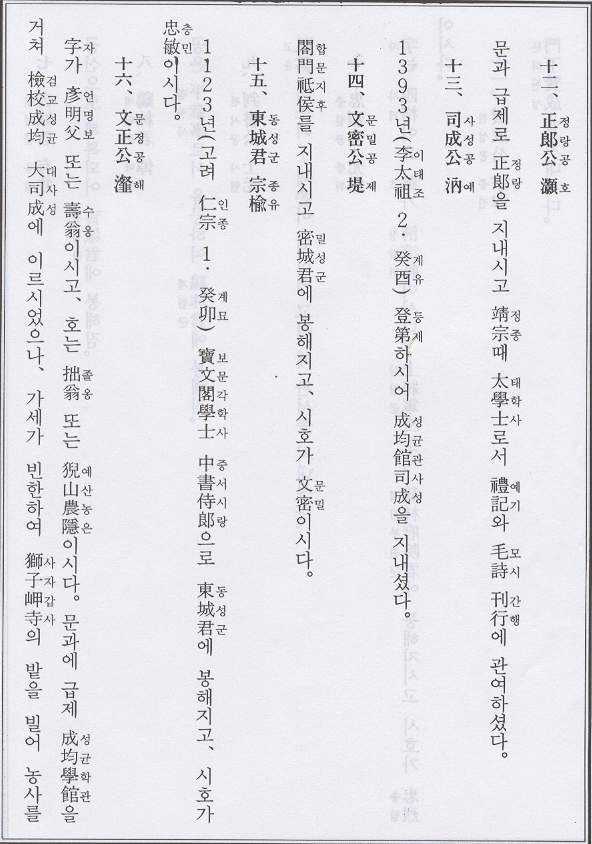 十二、正郎公 灝
정랑공 호
문과 급제로 正郎을 지내시고 靖宗때 太學士로서 禮記와 毛詩 刊行에 관여하셨다。
정랑 정종 태학사 예기 모시 간행
十三、司成公 汭
사성공 예
1393년(李太祖 2· 癸酉) 登第하시어 成均館司成을 지내셨다。
이태조 계유 등제 성균관사성
十四、文密公 堤
문밀공 제
閤門祗侯를 지내시고 密城君에 봉해지고、시호가 文密이시다。
합문지후 밀성군 문밀
十五、東城君 宗楡
동성군 종유
1,123년(고려 仁宗 1· 癸卯) 寶文閣學士 中書侍郎으로 東城君에 봉해지고、시호가
인종 계묘 보문각학사 중서시랑 동성군
忠敏이시다。
충민
十六、文正公 瀣
문정공 해
字가 彦明父 또는 壽翁이시고、호는 拙翁 또는 猊山農隱이시다。문과에 급제 成均學館을
자 언명보 수옹 졸옹 예산농은 성균학관
거쳐 檢校成均 大司成에 이르시었으나、가세가 빈한하여 獅子岬寺의 밭을 빌어 농사를
검교성균 대사성 사자갑사